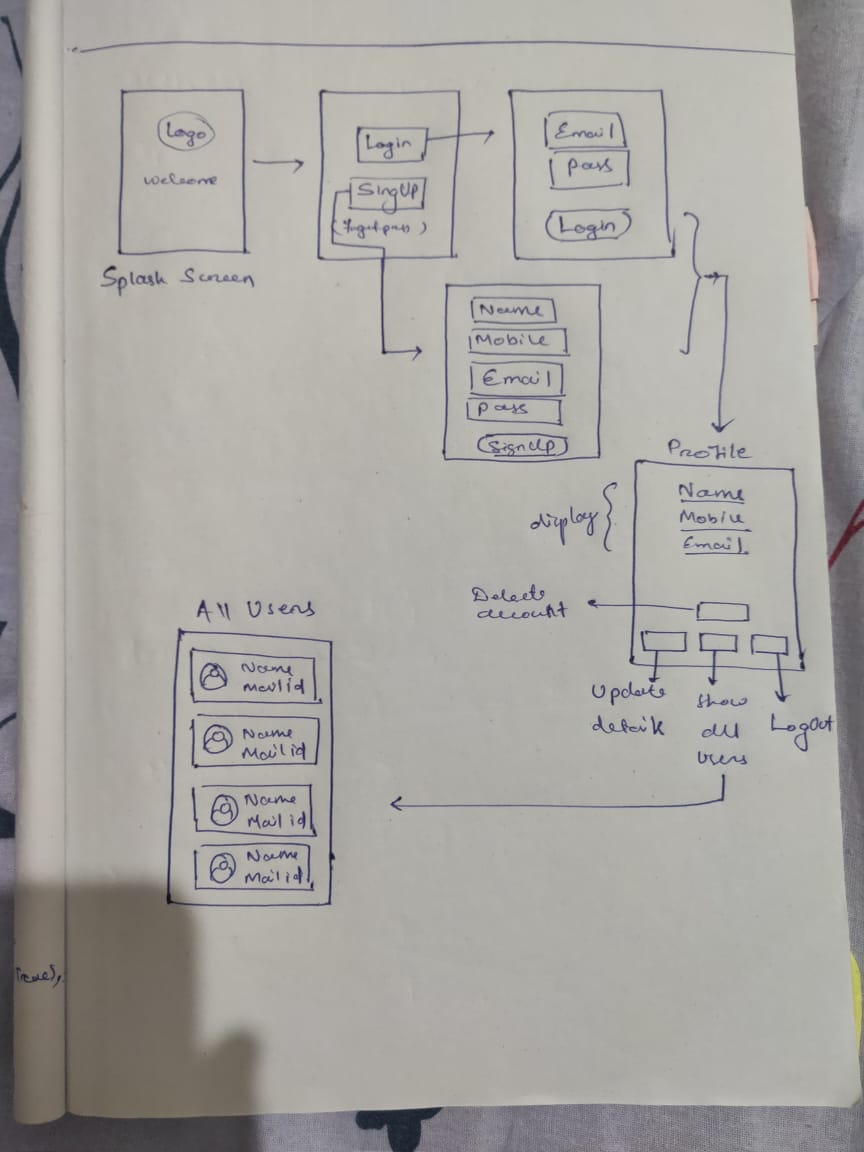 Logo
welcome
Splash Screen
Login
SingUp
(Forgot pass)
Email
pass
Login
Name
Mobile
Email
pass
SignUp
Profile
display
Name
Mobile
Email
Delete
account
Update
detail
Show
all
users
LogOut
All Users
Name
Mail id
Name
Mail id
Name
Mail id
Name
Mail id